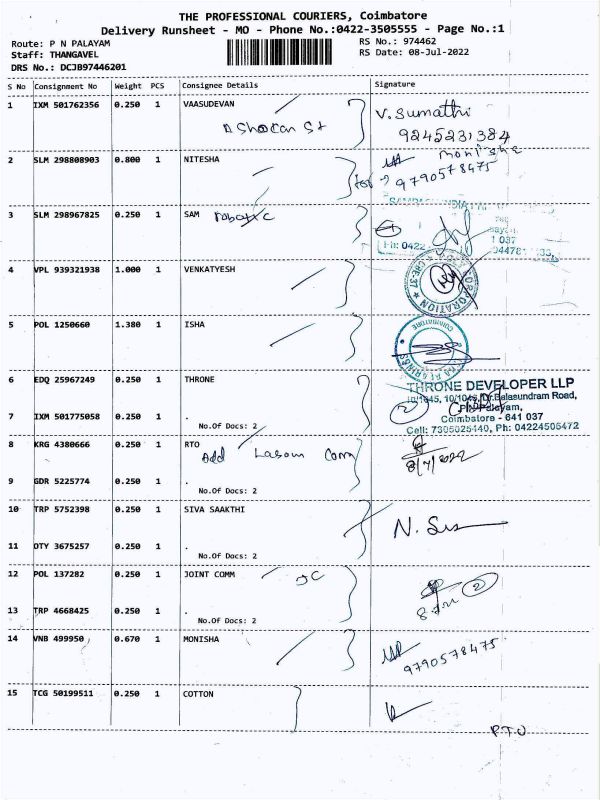 THE PROFESSIONAL COURIERS, Coimbatore
Delivery Runsheet - MO - Phone No.:0422-3505555 - Page No.:1
Route: P N PALAYAM
RS No.: 974462
Staff: THANGAVEL
RS Date: 08-Jul-2022
DRS No.: DCJB97446201
S No Consignment No Weight PCS Consignee Details Signature
1 IXM 501762356 0.250 1 VAASUDEVAN
V. Sumathi
9245231384
2 SLM 298808903 0.800 1 NITESHA
monisha
for → 9790578475
3 SLM 298967825 0.250 1 SAM
Ph: 0422
4 VPL 939321938 1.000 1 VENKATYESH
CBE-37 CORPORATION
5 POL 1250660 1.380 1 ISHA
COIMBATORE
6 EDQ 25967249 0.250 1 THRONE
THRONE DEVELOPER LLP
10/1045, 10/1046, Dr.Balasundram Road,
7 IXM 501775058 0.250 1 .
Coimbatore - 641 037
No.Of Docs: 2
Cell: 7305025440, Ph: 04224506472
8 KRG 4380666 0.250 1 RTO
Add Com
8/7/2022
9 GDR 5225774 0.250 1 .
No.Of Docs: 2
10 TRP 5752398 0.250 1 SIVA SAAKTHI
11 DTY 3675257 0.250 1 .
No.Of Docs: 2
12 POL 137282 0.250 1 JOINT COMM
JC
2
13 TRP 4668425 0.250 1 .
No.Of Docs: 2
14 VNB 499950 0.670 1 MONISHA
9790578475
15 TCG 50199511 0.250 1 COTTON
P.T.O